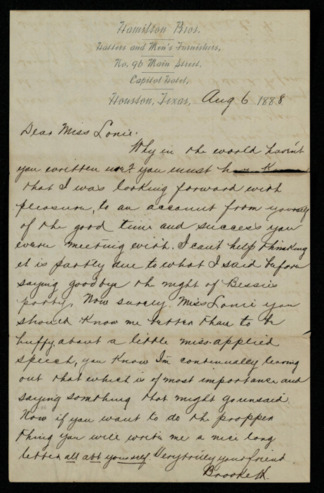 Hamilton Bros.
Hatters and Men's Furnishers,
No. 96 Main Street.
Capitol Hotel.
Houston, Texas, Aug 6 1888
Dear Miss Lonie.
Why in the world haven't
you written me? you must
that I was looking forward with
pleasure, to an account from yourself
of the good time and success you
were meeting with. I can't help thinking
it is partly due to what I said before
saying goodbye the night of Bessie's
party. Now surely Miss Lonie you
should know me better than to be
huffy about a little miss-applied
speech, you know I'm continually leaving
out that which is of most importance and
saying something that might go unsaid.
Now if you want to do the propper
thing you will write me a nice long
letter all abt yourself. Very truly your friend